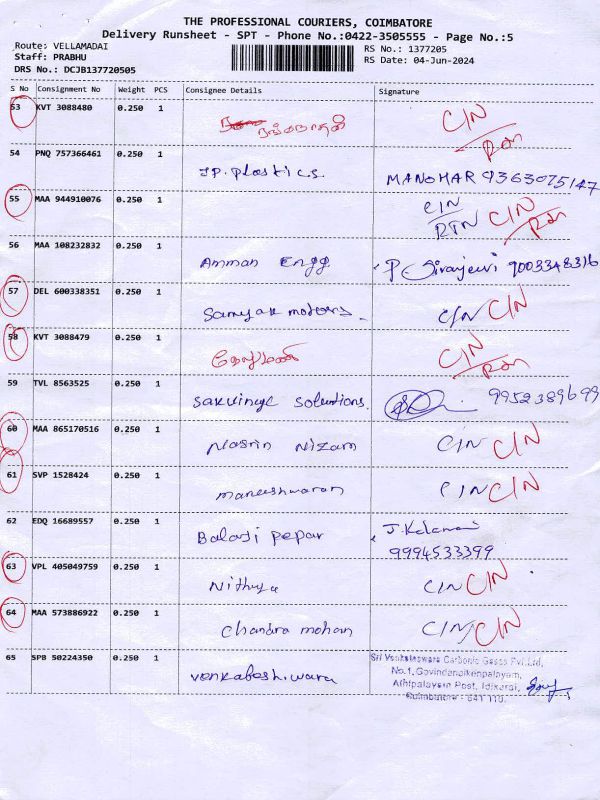 THE PROFESSIONAL COURIERS, COIMBATORE
Delivery Runsheet - SPT - Phone No.:0422-3505555 - Page No.:5
Route: VELLAMADAI
RS No.: 1377205
Staff: PRABHU
RS Date: 04-Jun-2024
DRS No.: DCJB137720505
S No Consignment No Weight PCS Consignee Details Signature
53 KVT 3088480 0.250 1 C/N
54 PNQ 757366461 0.250 1 J.P. plastics MANOHAR 9363075147
55 MAA 944910076 0.250 1 C/N C/N
RTN
56 MAA 108232832 0.250 1 Amman Engg 9003348316
57 DEL 600338351 0.250 1 Samyak motors C/N C/N
58 KVT 3088479 0.250 1 C/N
59 TVL 8563525 0.250 1 solutions. 9952389699
60 MAA 865170516 0.250 1 Nasrin Nizam C/N C/N
61 SVP 1528424 0.250 1 maneeshwaran C/N C/N
62 EDQ 16689557 0.250 1 Balaji pepar
9994533399
63 VPL 405049759 0.250 1 Nithya C/N C/N
64 MAA 573886922 0.250 1 Chandra mohan C/N C/N
65 SPB 50224350 0.250 1 Sri Venkateswara Carbonic Gases Pvt.Ltd,
No.1, Govindanaikenpalayam,
Athipalayam Post, Idikarai,
Coimbatore - 641 110.